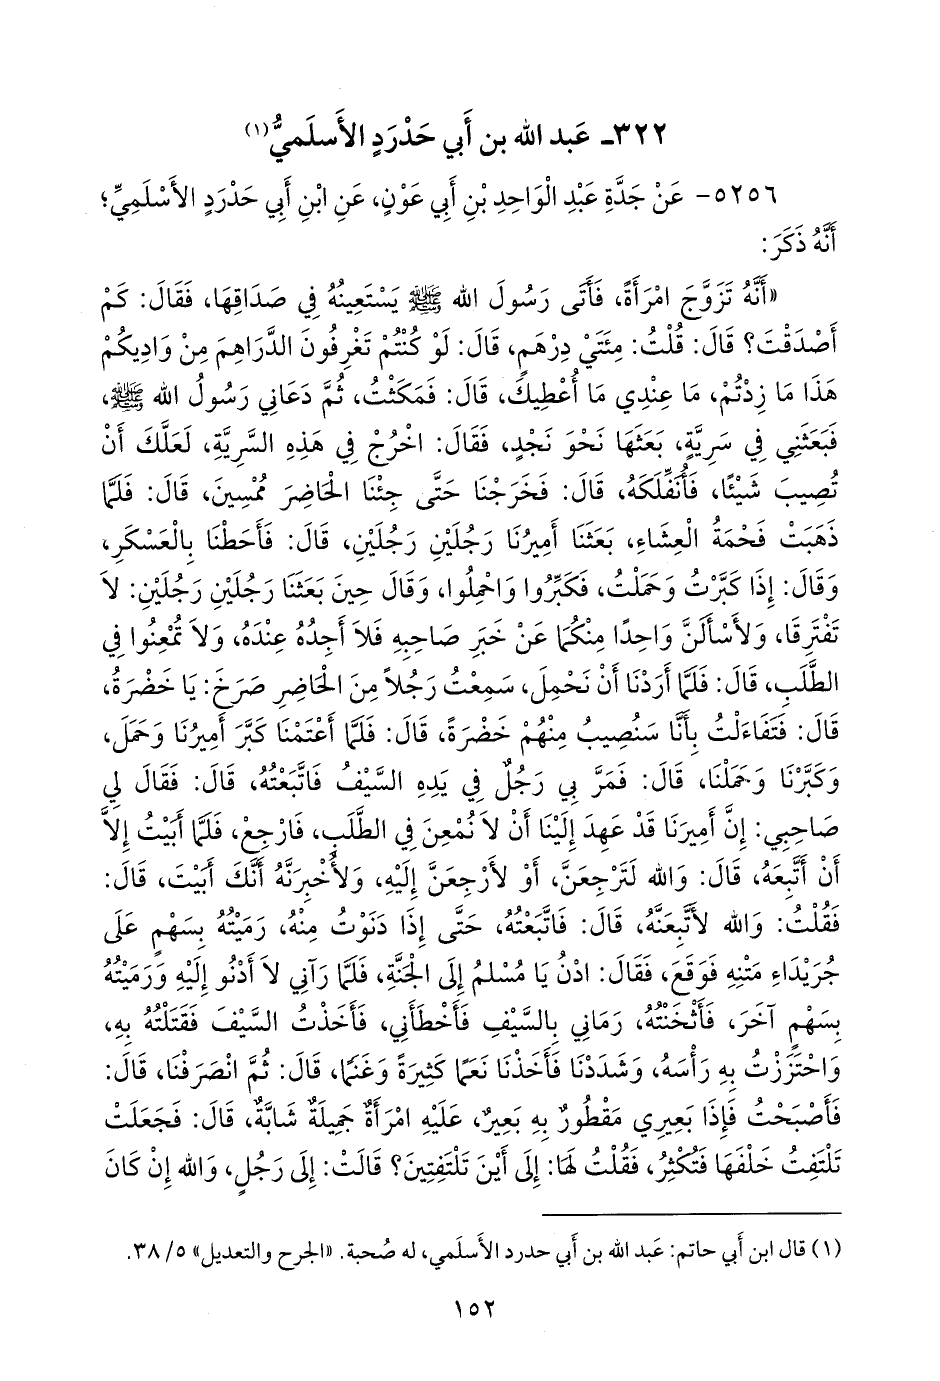 ٣٢٢ـ عَبد الله بن أَبي حَدْرَدٍ الأَسلَميُّ(١)
٥٢٥٦- عَنْ جَدَّةِ عَبْدِ الْوَاحِدِ بْنِ أَبِي عَوْنٍ، عَنِ ابْنِ أَبِي حَدْرَدٍ الأَسْلَمِيِّ؛
أَنَّهُ ذَكَرَ:
«أَنَّهُ تَزَوَّجَ امْرَأَةً، فَأَتَى رَسُولَ الله ﷺ يَسْتَعِينُهُ فِي صَدَاقِهَا، فَقَالَ: كَمْ
أَصْدَقْتَ؟ قَالَ: قُلْتُ: مِئَتَيْ دِرْهَمٍ، قَالَ: لَوْ كُنْتُمْ تَغْرِفُونَ الدَّرَاهِمَ مِنْ وَادِيكُمْ
هَذَا مَا زِدْتُمْ، مَا عِنْدِي مَا أُعْطِيكَ، قَالَ: فَمَكَثْتُ، ثُمَّ دَعَانِي رَسُولُ الله ﷺ،
فَبَعَثَنِي فِي سَرِيَّةٍ، بَعَثَهَا نَحْوَ نَجْدٍ، فَقَالَ: اخْرُجْ فِي هَذِهِ السَّرِيَّةِ، لَعَلَّكَ أَنْ
تُصِيبَ شَيْئًا، فَأُنَفِّلَكَهُ، قَالَ: فَخَرَجْنَا حَتَّى جِئْنَا الْحَاضِرَ مُمْسِينَ، قَالَ: فَلَمَّا
ذَهَبَتْ فَحْمَةُ الْعِشَاءِ، بَعَثَنَا أَمِيرُنَا رَجُلَيْنِ رَجُلَيْنِ، قَالَ: فَأَحَطْنَا بِالْعَسْكَرِ،
وَقَالَ: إِذَا كَبَّرْتُ وَحَمَلْتُ، فَكَبِّرُوا وَاحْمِلُوا، وَقَالَ حِينَ بَعَثَنَا رَجُلَيْنِ رَجُلَيْنِ: لاَ
تَفْتَرِقَا، وَلأَسْأَلَنَّ وَاحِدًا مِنْكُمَا عَنْ خَبَرِ صَاحِبِهِ فَلاَ أَجِدُهُ عِنْدَهُ، وَلاَ تُمْعِنُوا فِي
الطَّلَبِ، قَالَ: فَلَمَّا أَرَدْنَا أَنْ نَحْمِلَ، سَمِعْتُ رَجُلاً مِنَ الْحَاضِرِ صَرَخَ: يَا خَضْرَةُ،
قَالَ: فَتَفَاءَلْتُ بِأَنَّا سَنُصِيبُ مِنْهُمْ خَضْرَةً، قَالَ: فَلَمَّا أَعْتَمْنَا كَبَّرَ أَمِيرُنَا وَحَمَلَ،
وَكَبَّرْنَا وَحَمَلْنَا، قَالَ: فَمَرَّ بِي رَجُلٌ فِي يَدِهِ السَّيْفُ فَاتَّبَعْتُهُ، قَالَ: فَقَالَ لِي
صَاحِبِي: إِنَّ أَمِيرَنَا قَدْ عَهِدَ إِلَيْنَا أَنْ لاَ نُمْعِنَ فِي الطَّلَبِ، فَارْجِعْ، فَلَمَّا أَبَيْتُ إِلاَّ
أَنْ أَتَّبِعَهُ، قَالَ: وَالله لَتَرْجِعَنَّ، أَوْ لأَرْجِعَنَّ إِلَيْهِ، وَلأُخْبِرَنَّهُ أَنَّكَ أَبَيْتَ، قَالَ:
فَقُلْتُ: وَالله لأَتَّبِعَنَّهُ، قَالَ: فَاتَّبَعْتُهُ، حَتَّى إِذَا دَنَوْتُ مِنْهُ، رَمَيْتُهُ بِسَهْمٍ عَلَى
جُرَيْدَاءِ مَتْنِهِ فَوَقَعَ، فَقَالَ: ادْنُ يَا مُسْلِمُ إِلَى الْجَنَّةِ، فَلَمَّا رَآنِي لاَ أَدْنُو إِلَيْهِ وَرَمَيْتُهُ
بِسَهْمٍ آخَرَ، فَأَثْخَنْتُهُ، رَمَانِي بِالسَّيْفِ فَأَخْطَأَنِي، فَأَخَذْتُ السَّيْفَ فَقَتَلْتُهُ بِهِ،
وَاحْتَزَزْتُ بِهِ رَأْسَهُ، وَشَدَدْنَا فَأَخَذْنَا نَعَمًا كَثِيرَةً وَغَنَمًا، قَالَ: ثُمَّ انْصَرَفْنَا، قَالَ:
فَأَصْبَحْتُ فَإِذَا بَعِيرِي مَقْطُورٌ بِهِ بَعِيرٌ، عَلَيْهِ امْرَأَةٌ جَمِيلَةٌ شَابَّةٌ، قَالَ: فَجَعَلَتْ
تَلْتَفِتُ خَلْفَهَا فَتُكْثِرُ، فَقُلْتُ لَهَا: إِلَى أَيْنَ تَلْتَفِتِينَ؟ قَالَتْ: إِلَى رَجُلٍ، وَالله إِنْ كَانَ
(١) قال ابن أَبي حاتم: عَبد الله بن أَبي حدرد الأَسلَمي، له صُحبة. «الجرح والتعديل» ٥/ ٣٨.
١٥٢